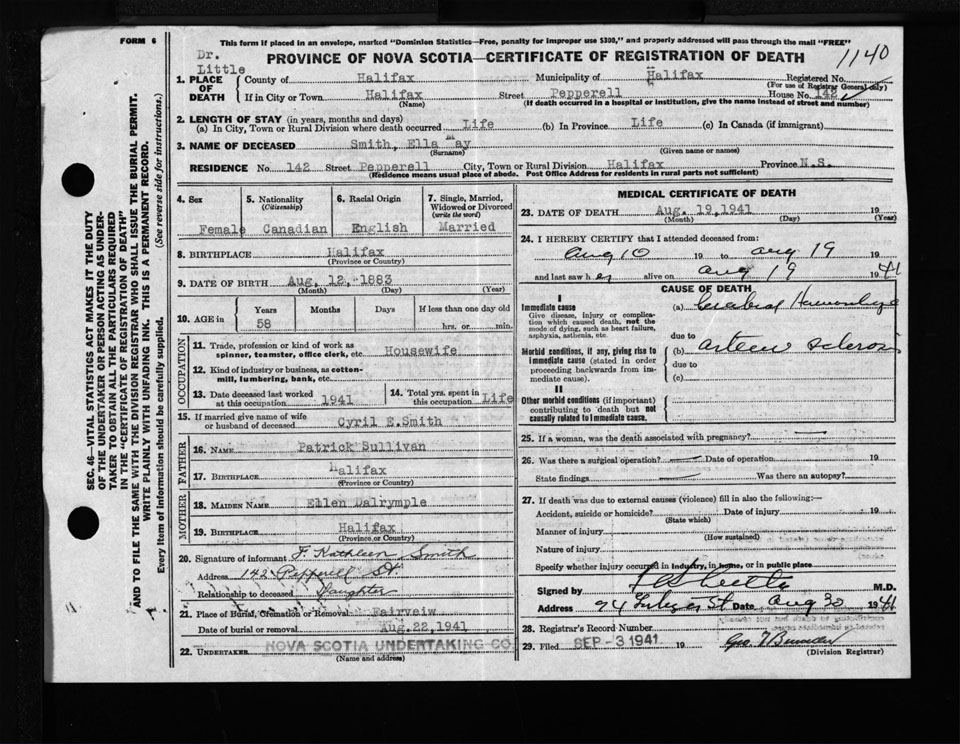 FORM 6
This form if placed in an envelope, marked "Dominion Statistics—Free, penalty for improper use $300," and properly addressed will pass through the mail "FREE"
Dr.
Little
PROVINCE OF NOVA SCOTIA—CERTIFICATE OF REGISTRATION OF DEATH
1140
1. PLACE OF DEATH
County of Halifax Municipality of Halifax Registered No.
(For use of Registrar General only)
If in City or Town Halifax Street Pepperell House No. 142
(Name) (If death occurred in a hospital or institution, give the name instead of street and number)
2. LENGTH OF STAY (in years, months and days)
(a) In City, Town or Rural Division where death occurred Life (b) In Province Life (c) In Canada (if immigrant)
3. NAME OF DECEASED Smith, Ella May
(Surname) (Given name or names)
RESIDENCE No. 142 Street Pepperell City, Town or Rural Division Halifax Province N.S.
(Residence means usual place of abode. Post Office Address for residents in rural parts not sufficient)
4. Sex 5. Nationality (Citizenship) 6. Racial Origin 7. Single, Married, Widowed or Divorced (write the word)
Female Canadian English Married
8. BIRTHPLACE Halifax
(Province or Country)
9. DATE OF BIRTH Aug. 12, 1883
(Month) (Day) (Year)
10. AGE in Years Months Days If less than one day old
58 hrs. or min.
OCCUPATION
11. Trade, profession or kind of work as spinner, teamster, office clerk, etc Housewife
12. Kind of industry or business, as cotton-mill, lumbering, bank, etc
13. Date deceased last worked at this occupation 1941
14. Total yrs. spent in this occupation Life
15. If married give name of wife or husband of deceased Cyril E.Smith
FATHER
16. NAME Patrick Sullivan
17. BIRTHPLACE Halifax
(Province or Country)
MOTHER
18. MAIDEN NAME Ellen Dalrymple
19. BIRTHPLACE Halifax
(Province or Country)
20. Signature of informant F. Kathleen Smith
Address 142 Pepperell St
Relationship to deceased Daughter
21. Place of Burial, Cremation or Removal Fairveiw
Date of burial or removal Aug.22,1941
22. UNDERTAKER NOVA SCOTIA UNDERTAKING CO
(Name and address)
MEDICAL CERTIFICATE OF DEATH
23. DATE OF DEATH Aug. 19, 1941 19
(Month) (Day) (Year)
24. I HEREBY CERTIFY that I attended deceased from:
Aug 10 19 to Aug 19 19
and last saw her alive on Aug 19 1941
CAUSE OF DEATH
I
Immediate cause
Give disease, injury or complication which caused death, not the mode of dying, such as heart failure, asphyxia, asthenia, etc.
(a) Cerebral Hemorrhage
due to
Morbid conditions, if any, giving rise to immediate cause (stated in order proceeding backwards from immediate cause).
(b) Arterio Sclerosis
due to
(c)
II
Other morbid conditions (if important) contributing to death but not causally related to immediate cause.
25. If a woman, was the death associated with pregnancy?
26. Was there a surgical operation? Date of operation
State findings Was there an autopsy?
27. If death was due to external causes (violence) fill in also the following:—
Accident, suicide or homicide? Date of injury 19
(State which)
Manner of injury
(How sustained)
Nature of injury
Specify whether injury occurred in industry, in home, or in public place
Signed by M.D.
Address 94 St Date Aug 1941
28. Registrar's Record Number
29. Filed SEP - 3 1941 19
(Division Registrar)
SEC. 46—VITAL STATISTICS ACT MAKES IT THE DUTY
OF THE UNDERTAKER OR PERSON ACTING AS UNDER-
TAKER TO OBTAIN ALL THE PARTICULARS REQUIRED
IN THE "CERTIFICATE OF REGISTRATION OF DEATH"
AND TO FILE THE SAME WITH THE DIVISION REGISTRAR WHO SHALL ISSUE THE BURIAL PERMIT.
WRITE PLAINLY WITH UNFADING INK. THIS IS A PERMANENT RECORD.
Every item of information should be carefully supplied. (See reverse side for instructions.)